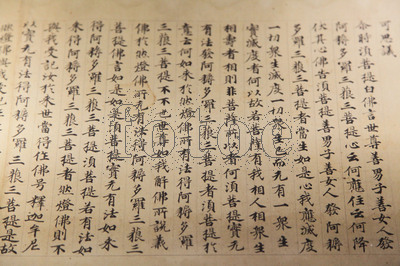 可思議
尒時須菩提白佛言世尊善男子善女人發
阿耨多羅三藐三菩提心云何應住云何降
伏其心佛告須菩提善男子善女人發阿耨
多羅三藐三菩提者當生如是心我應滅度
一切衆生滅度一切衆生已而无有一衆生
實滅度者何以故若菩薩有我相人相衆生
相壽者相則非菩薩所以者何須菩提實无
有法發阿耨多羅三藐三菩提者須菩提於
意云何如來於然燈佛所有法得阿耨多羅
三藐三菩提不不也世尊如我解佛所說義
佛於然燈佛所无有法得阿耨多羅三藐三
菩提佛言如是如是須菩提實无有法如來
得阿耨多羅三藐三菩提須菩提若有法如
來得阿耨多羅三藐三菩提者然燈佛則不
與我受記汝於來世當得作佛号釋迦牟尼
以實无有法得阿耨多羅三藐三菩提是故
然燈佛與我受記